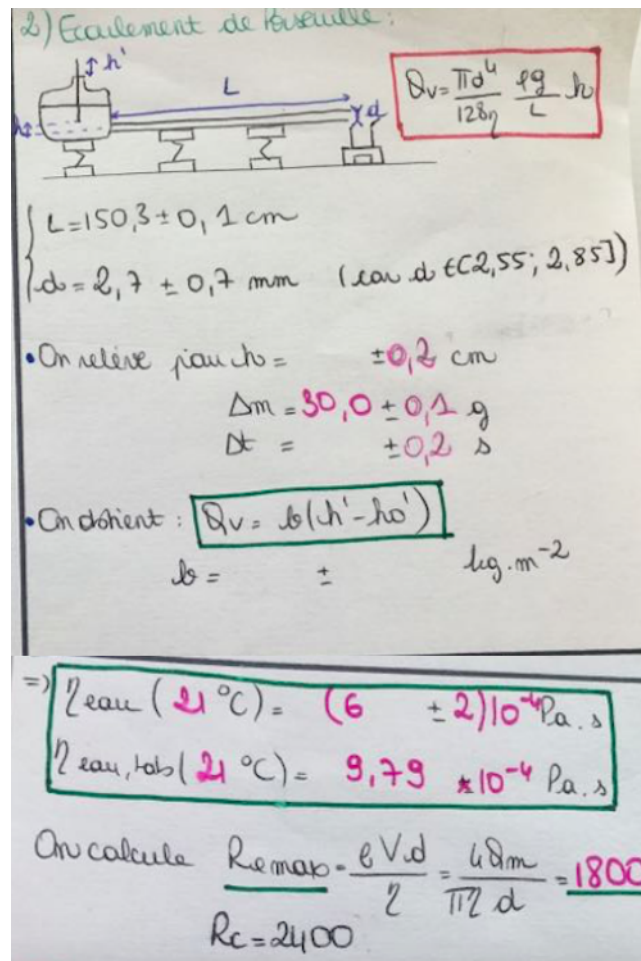 2) Ecoulement de Poiseuille :
h'
L
d
h
Qv = πd⁴/128η ρg/L h
L = 150,3 ± 0,1 cm
d = 2,7 ± 0,7 mm (car d ∈ [2,55 ; 2,85])
• On relève pour h = ±0,2 cm
Δm = 30,0 ± 0,1 g
Δt = ±0,2 s
• On obtient : Qv = b(h'-ho')
b = ± kg.m⁻²
=> η eau (21 °C) = (6 ± 2)10⁻⁴ Pa.s
η eau, tab (21 °C) = 9,79 *10⁻⁴ Pa.s
On calcule Remax = ρVd/η = 4Qm/πηd = 1800
Rc = 2400